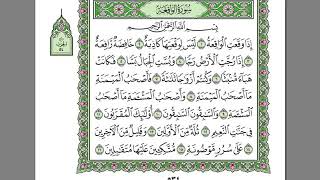 سُورَةُ الوَاقِعَةِ
بِسْمِ اللَّهِ الرَّحْمَٰنِ الرَّحِيمِ
إِذَا وَقَعَتِ الْوَاقِعَةُ ۝١ لَيْسَ لِوَقْعَتِهَا كَاذِبَةٌ ۝٢ خَافِضَةٌ رَّافِعَةٌ
۝٣ إِذَا رُجَّتِ الْأَرْضُ رَجًّا ۝٤ وَبُسَّتِ الْجِبَالُ بَسًّا ۝٥ فَكَانَتْ
هَبَاءً مُّنبَثًّا ۝٦ وَكُنتُمْ أَزْوَاجًا ثَلَاثَةً ۝٧ فَأَصْحَابُ الْمَيْمَنَةِ
مَا أَصْحَابُ الْمَيْمَنَةِ ۝٨ وَأَصْحَابُ الْمَشْأَمَةِ مَا أَصْحَابُ
الْمَشْأَمَةِ ۝٩ وَالسَّابِقُونَ السَّابِقُونَ ۝١٠ أُولَٰئِكَ الْمُقَرَّبُونَ ۝١١
فِي جَنَّاتِ النَّعِيمِ ۝١٢ ثُلَّةٌ مِّنَ الْأَوَّلِينَ ۝١٣ وَقَلِيلٌ مِّنَ الْآخِرِينَ
۝١٤ عَلَىٰ سُرُرٍ مَّوْضُونَةٍ ۝١٥ مُّتَّكِئِينَ عَلَيْهَا مُتَقَابِلِينَ ۝١٦
٥٣٤